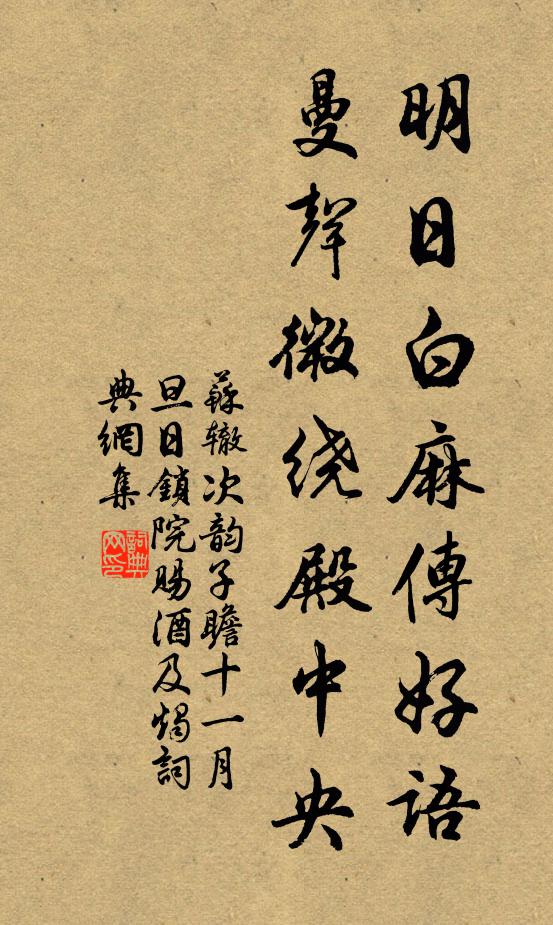 明日白麻傳好語
曼聲微绕殿中央
蘇辙次韵子瞻十一月
旦日鎖院賜酒及燭詞
典網集
詞典网印